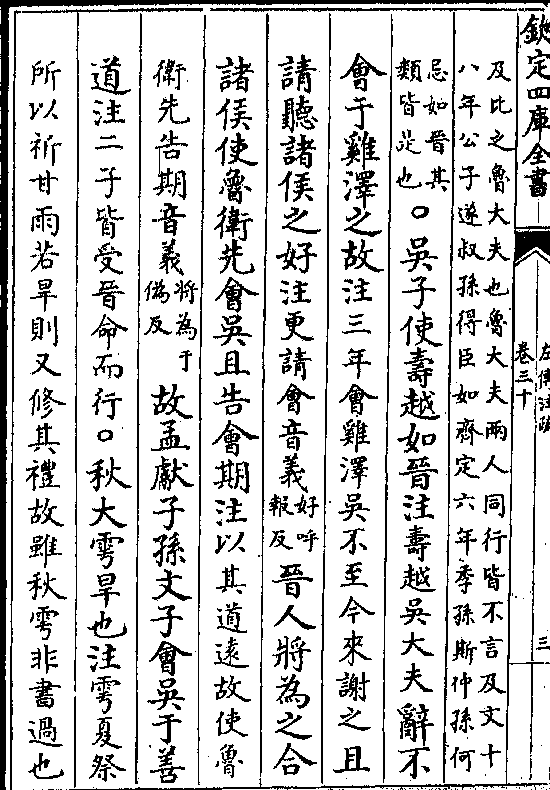 欽定四庫全書
左傳注疏
卷三十
三
及比之魯大夫也魯大夫兩人同行皆不言及文十
八年公子遂叔孫得臣如齊定六年季孫斯仲孫何
忌如晉其
類皆是也
○吳子使壽越如晉注壽越吳大夫辭不
會于雞澤之故注三年會雞澤吳不至今來謝之且
請聽諸侯之好注更請會音義好呼
報反
晉人將為之合
諸侯使魯衛先會吳且告會期注以其道遠故使魯
衛先告期音義將為于
偽反
故孟獻子孫文子會吳于善
道注二子皆受晉命而行○秋大雩旱也注雩夏祭
所以祈甘雨若旱則又修其禮故雖秋雩非書過也